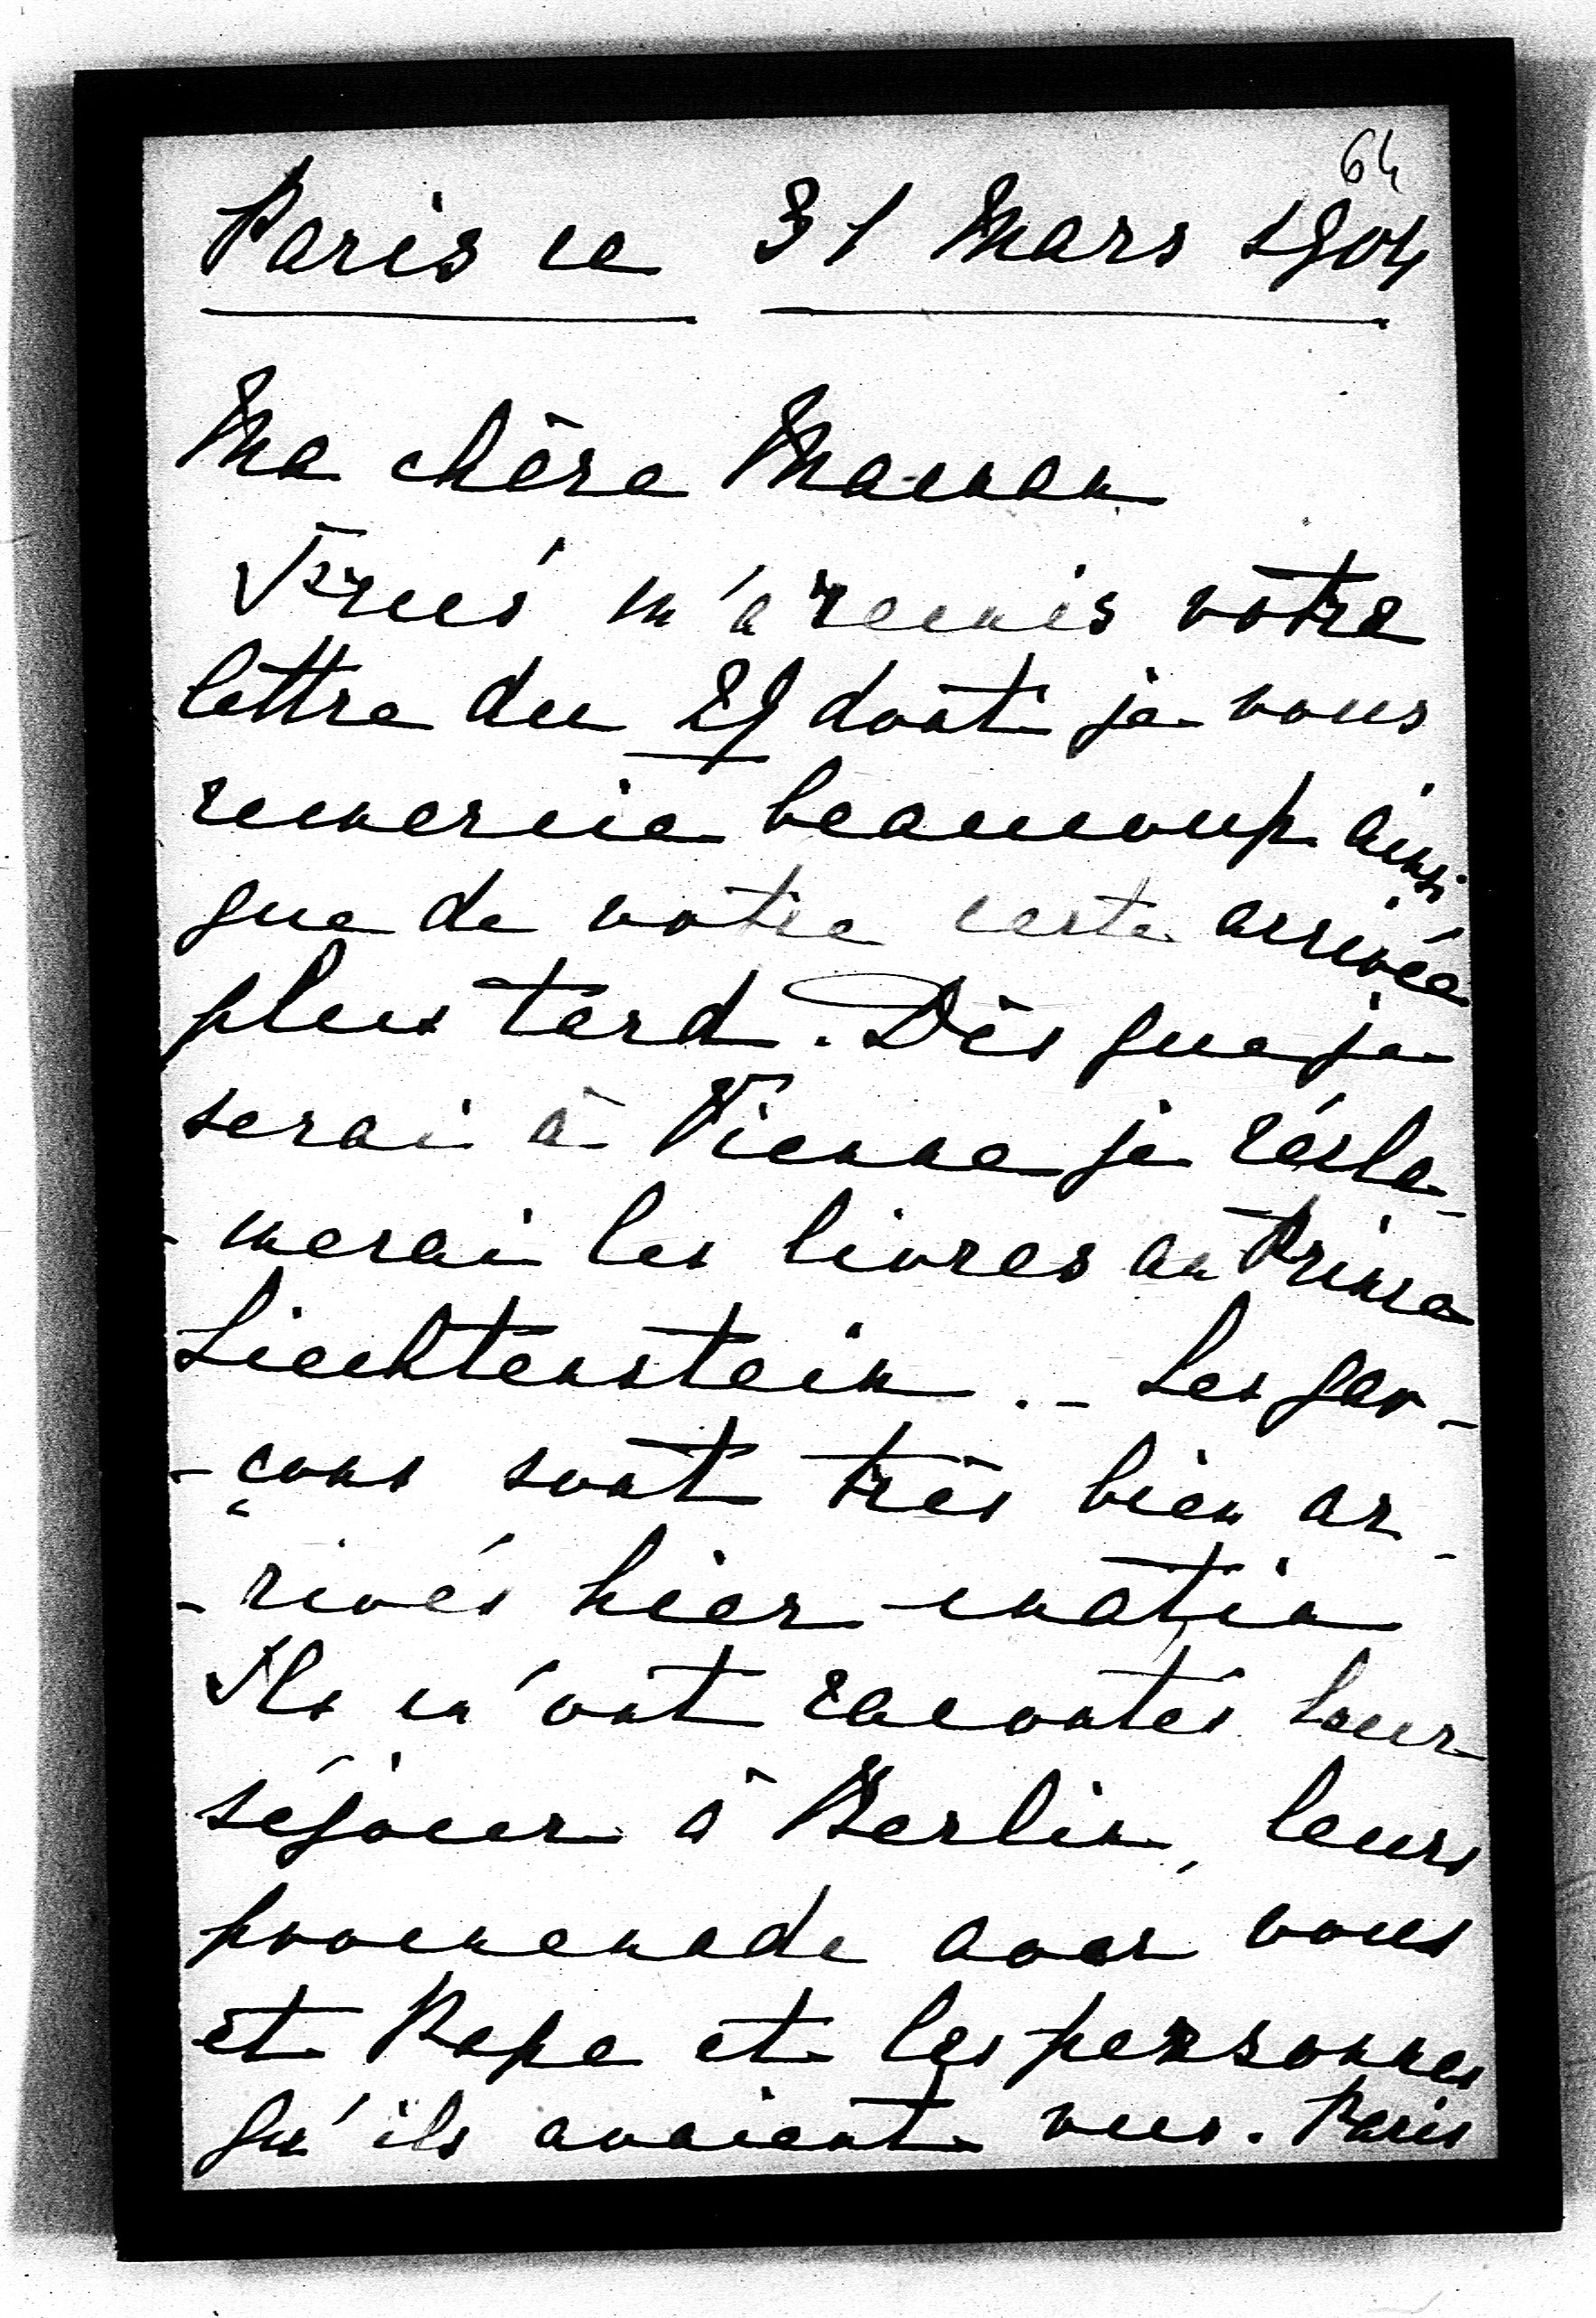 64
Paris ce 31 Mars 1904
Ma chère Maman
m'a remis votre
lettre du 29 dont je vous
remercie beaucoup ainsi
que de votre carte arrivée
plus tard. Dès que je
serai à Vienne je récla-
-merai les livres au Prince
Liechtenstein. - Les gar-
-çons sont très bien ar-
-rivés hier matin
Ils m'ont racontés leur
séjour à Berlin, leurs
promenade avec vous
et Papa et les personnes
qu'ils avaient vues. Paris